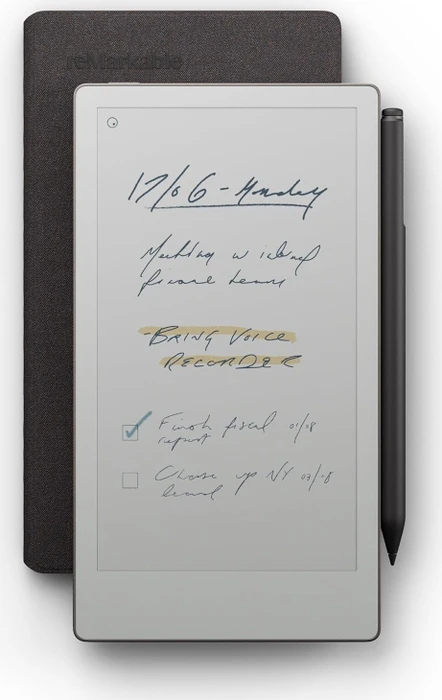 reMarkable
17/06 - Monday
Meeting w
team
- BRING VOICE
RECORDER
Finish fiscal 01/08
report
up NY 03/08